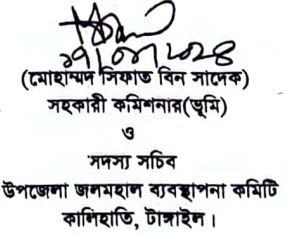 ২৭/০৭/২০২৪
(মোহাম্মদ সিফাত বিন সাদেক)
সহকারী কমিশনার(ভূমি)
ও
সদস্য সচিব
উপজেলা জলমহাল ব্যবস্থাপনা কমিটি
কালিহাতি, টাঙ্গাইল।